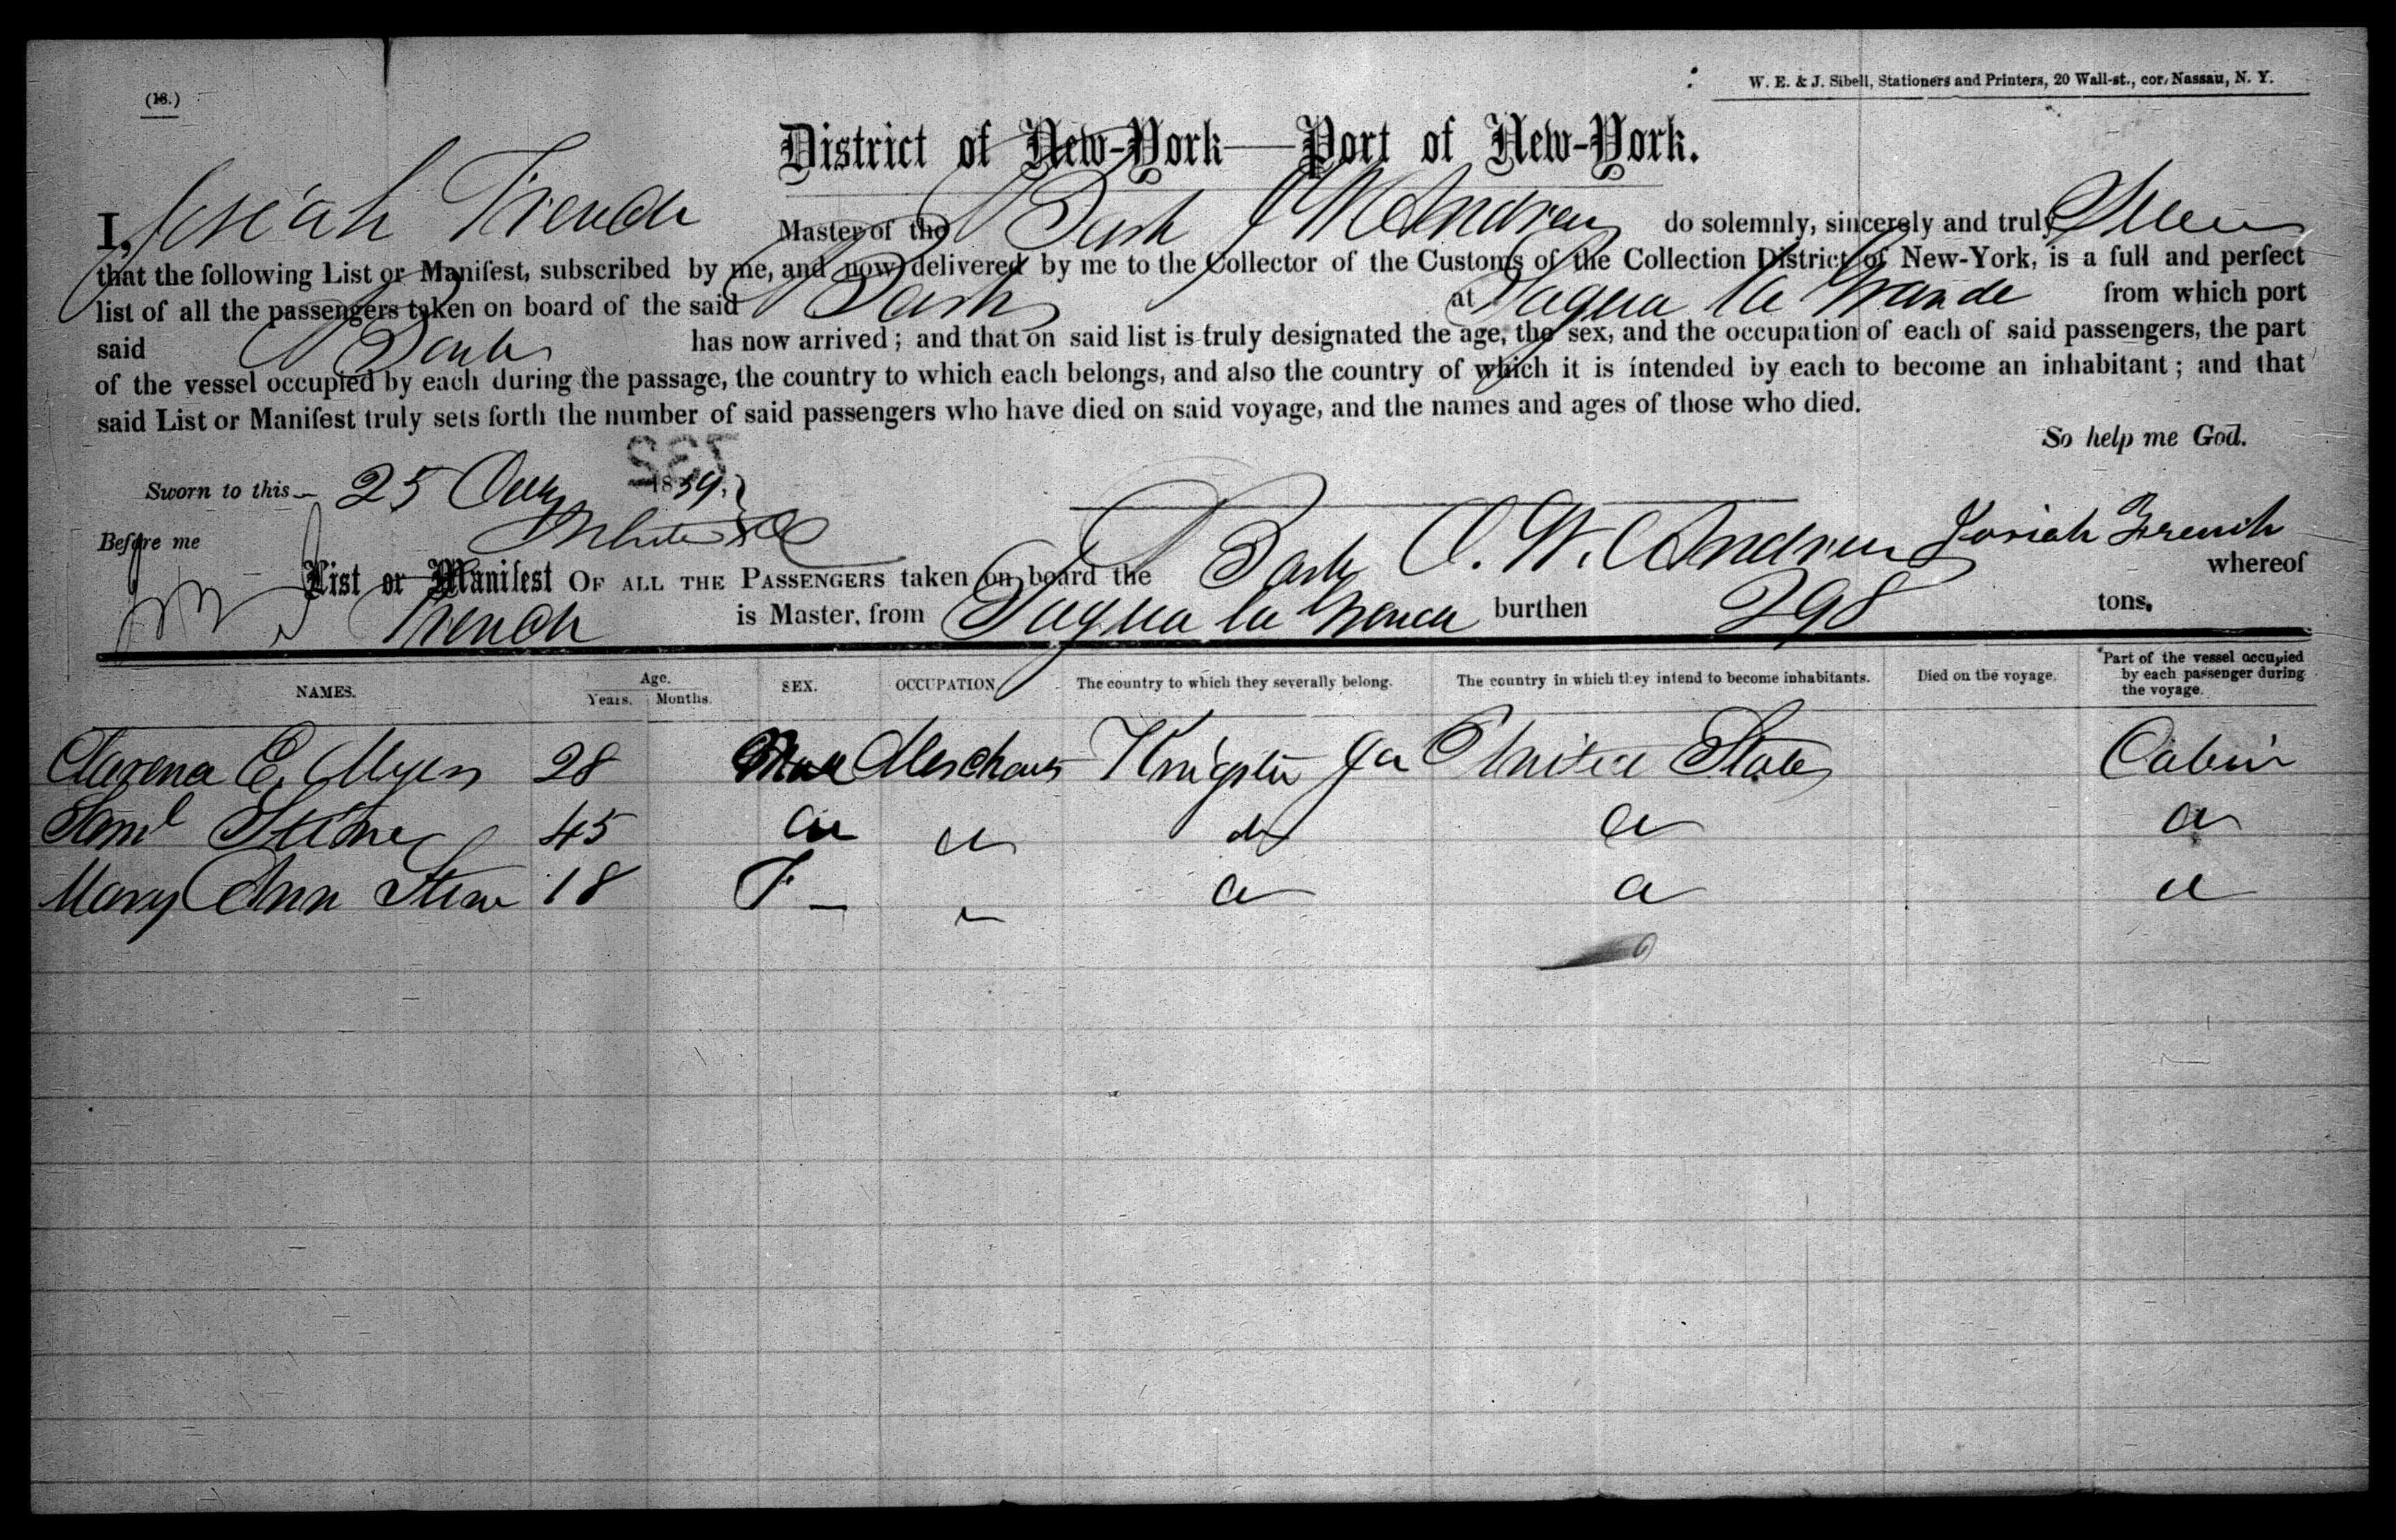 (18.)
W. E. & J. Sibell, Stationers and Printers, 20 Wall-st., cor. Nassau, N. Y.
District of New-York—Port of New-York.
I, Josiah French Master of the Bark do solemnly, sincerely and truly Swear
that the following List or Manifest, subscribed by me, and now delivered by me to the Collector of the Customs of the Collection District of New-York, is a full and perfect
list of all the passengers taken on board of the said Bark at Sagua la Grande from which port
said Bark has now arrived; and that on said list is truly designated the age, the sex, and the occupation of each of said passengers, the part
of the vessel occupied by each during the passage, the country to which each belongs, and also the country of which it is intended by each to become an inhabitant; and that
said List or Manifest truly sets forth the number of said passengers who have died on said voyage, and the names and ages of those who died.
So help me God.
Sworn to this 25 1859,
Before me
Josiah French
List or Manifest OF ALL THE PASSENGERS taken on board the Bark whereof
French is Master, from Sagua la Grande burthen 298 tons.
NAMES. Age. Years. Months. SEX. OCCUPATION. The country to which they severally belong. The country in which they intend to become inhabitants. Died on the voyage. Part of the vessel occupied by each passenger during the voyage.
E. Myers 28 Male Merchant Kingston Ja United States Cabin
Saml 45
Mary Ann 18 F